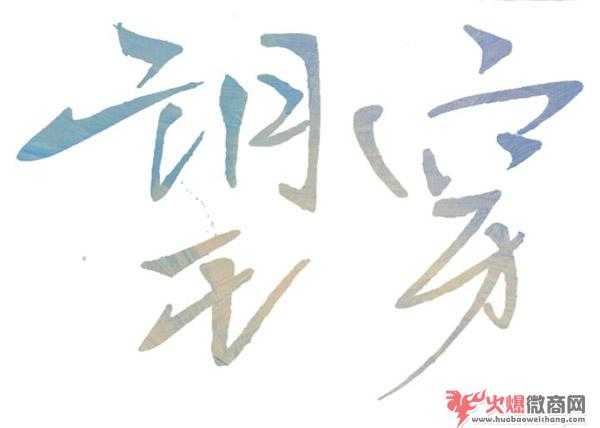 望穿
火爆微商网
www.huobaoweishang.com